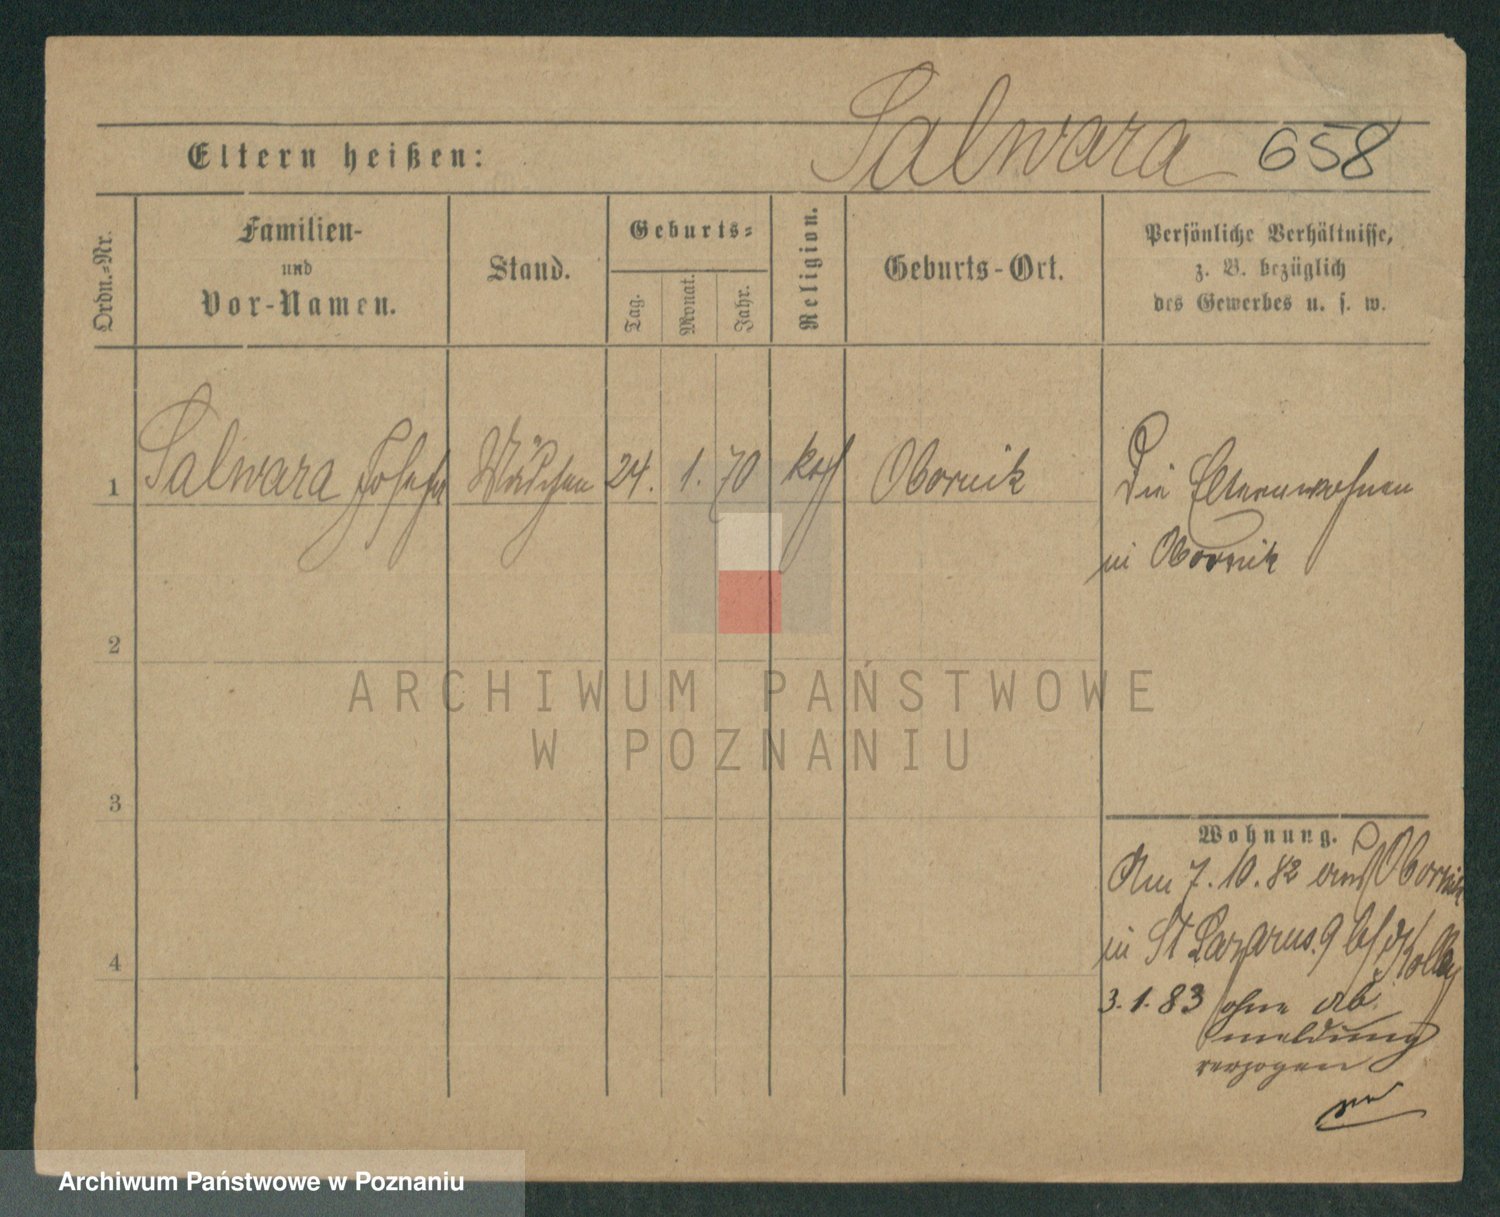 Salwara 658
Eltern heißen:
Ordn.-Nr.
Familien-
und
Vor-Namen.
Stand.
Geburts-
Tag.
Monat.
Jahr.
Religion.
Geburts-Ort.
Persönliche Verhältnisse,
z. B. bezüglich
des Gewerbes u. s. w.
1 Salwara Josefa Mädchen 24. 1. 70 kath Obornik Die Eltern wohnen
in Obornik
2
ARCHIWUM PAŃSTWOWE
W POZNANIU
3
Wohnung.
Am 7.10.82 aus Obornik
in St Lazarus. 9
4
3.1.83 ohne Ab
meldung
verzogen
Archiwum Państwowe w Poznaniu